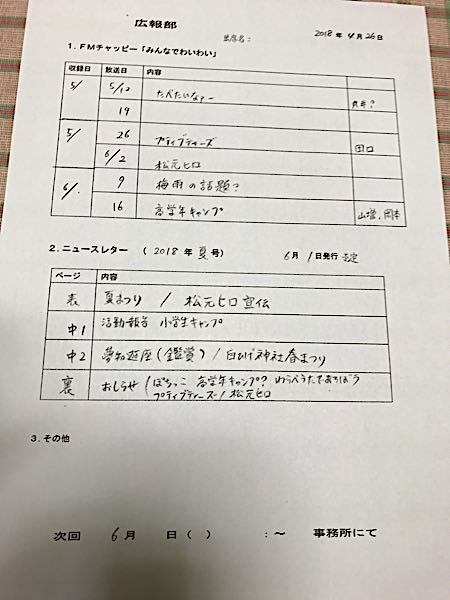 広報部
出席者：
2018年 4月26日
1．FMチャッピー「みんなでわいわい」
収録日 放送日 内容
5/ 5/12 たべたいなァー
19 丸井？
5/ 26 プティプティーズ 田口
6/2 松元ヒロ
6/. 9 梅雨の話題？
16 高学年キャンプ 山增、岡本
2．ニュースレター （2018年 夏号） 6月 1日発行 予定
ページ 内容
表 夏まつり / 松元ヒロ宣伝
中1 活動報告 小学生キャンプ
中2 夢知遊座(鑑賞) / 白ひげ神社春まつり
裏 おしらせ ( ぽちっこ 高学年キャンプ？ わらべうたであそぼう
プティプティーズ / 松元ヒロ
3．その他
次回 6月 日（ ） ：～ 事務所にて